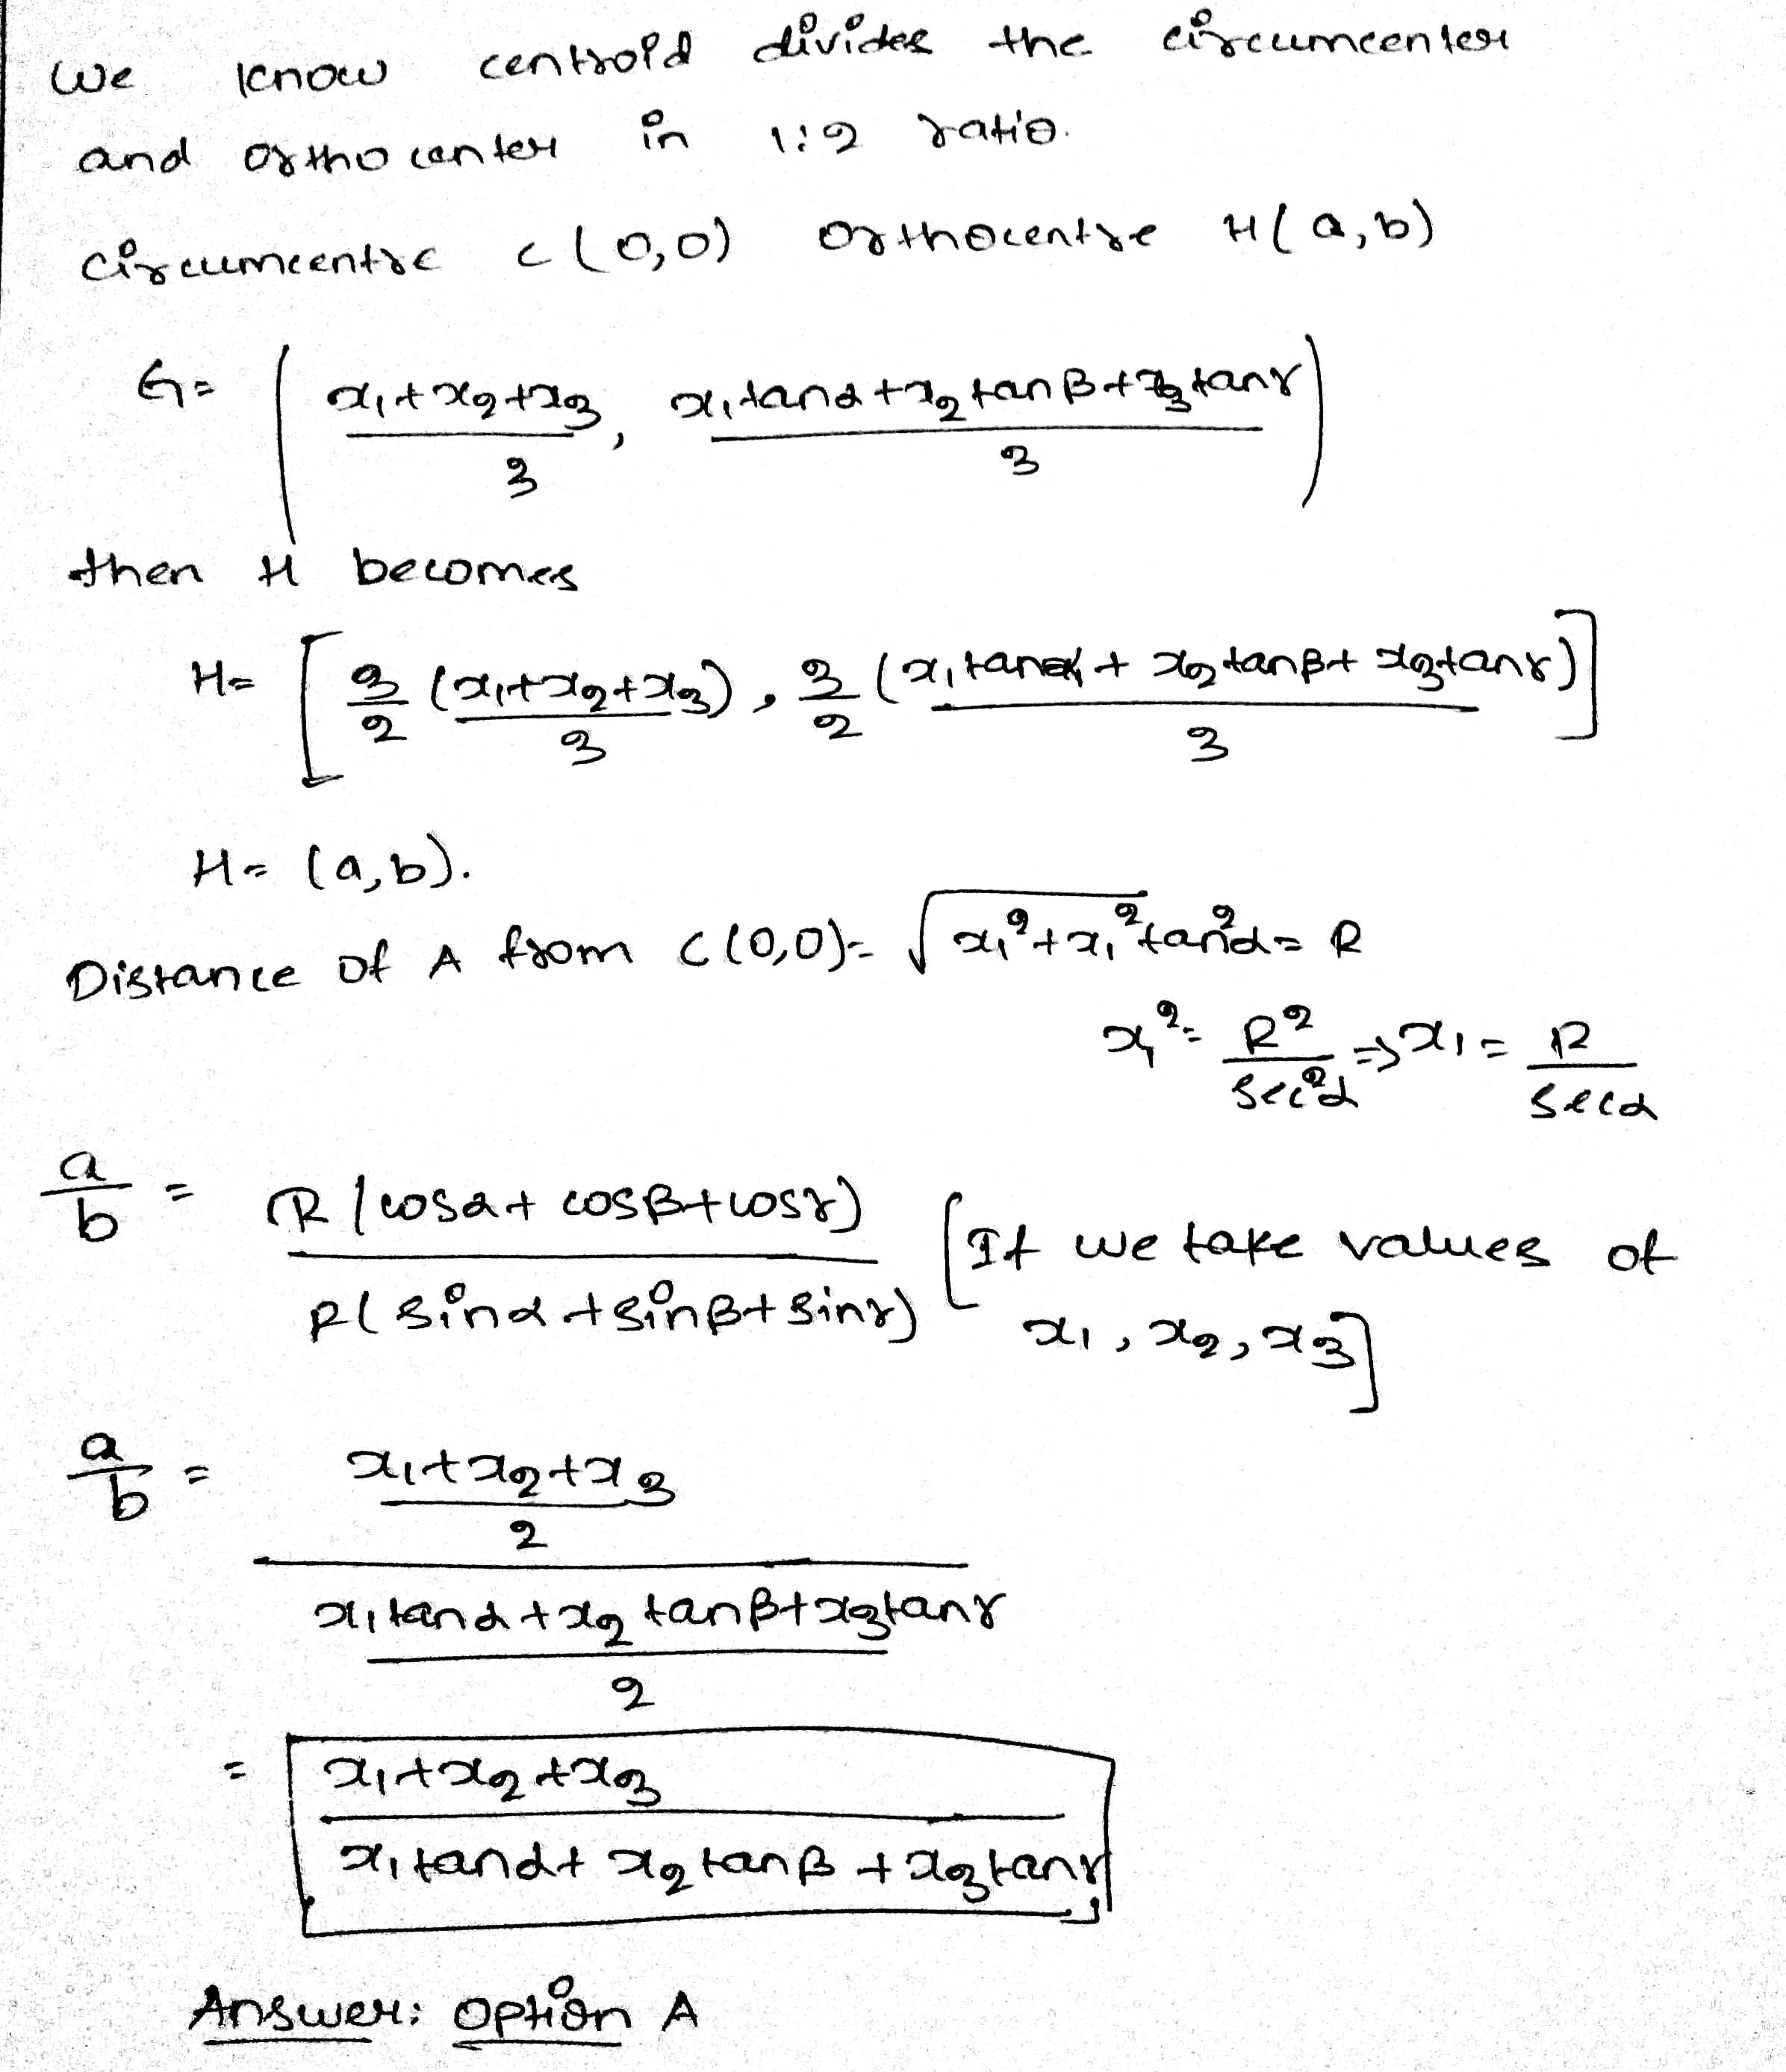 We know centroid divides the circumcenter
and orthocenter in 1:2 ratio.
circumcentre C(0,0) orthocentre H(a,b)
G = ( (x₁+x₂+x₃)/3 , (x₁tanα+x₂tanβ+x₃tanγ)/3 )
then H becomes
H = [ 3/2 (x₁+x₂+x₃)/3 , 3/2 (x₁tanα+x₂tanβ+x₃tanγ)/3 ]
H = (a,b).
Distance of A from C(0,0) = √(x₁²+x₁²tan²α) = R
x₁² = R²/sec²α ⇒ x₁ = R/secα
a/b = R(cosα+cosβ+cosγ) / R(sinα+sinβ+sinγ) [If we take values of
x₁, x₂, x₃]
a/b = ((x₁+x₂+x₃)/2) / ((x₁tanα+x₂tanβ+x₃tanγ)/2)
= (x₁+x₂+x₃) / (x₁tanα+x₂tanβ+x₃tanγ)
Answer: Option A